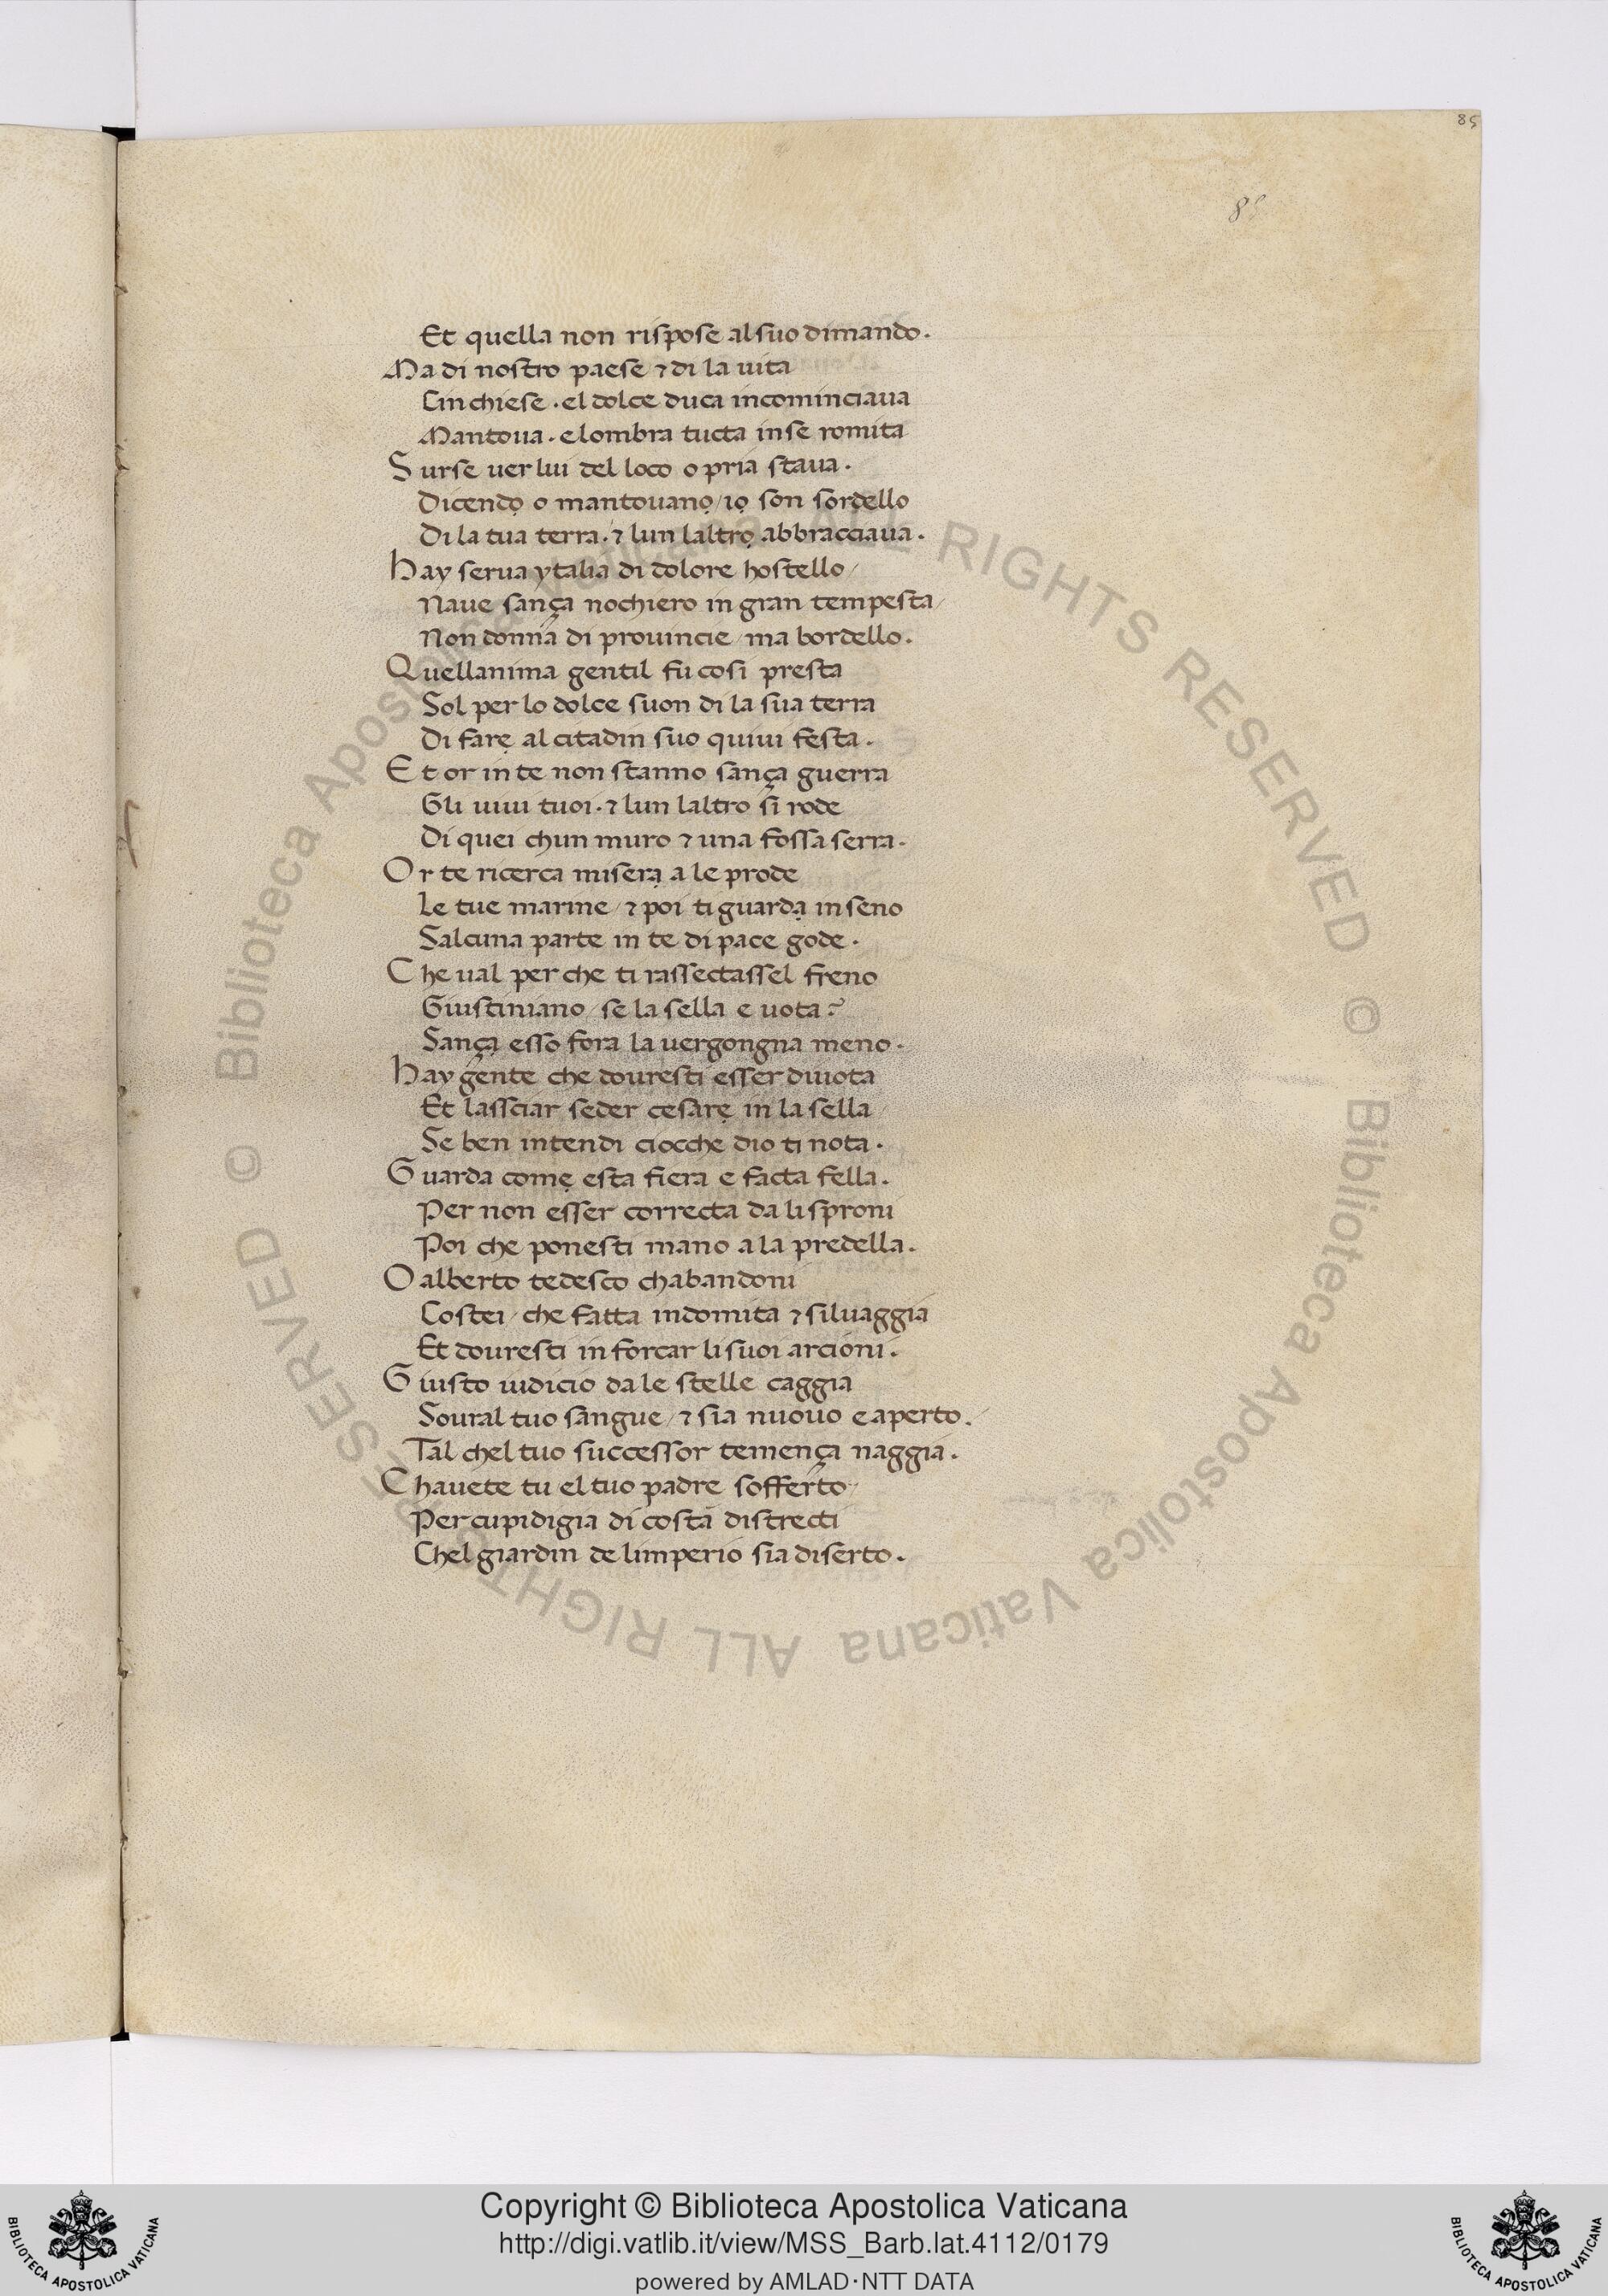 85
85
Et quella non rispose al suo dimando.
Ma di nostro paese ⁊ di la uita
Cin chiese. el dolce duca incominciaua
Mantoua. e lombra tucta in se romita
Surse uer lui del loco o pria staua.
Dicendọ o mantouanọ / iọ son sordello
Di la tua terra. ⁊ lun laltrọ abbracciaua.
Hay serua ytalia di dolore hostello /
Naue sança nochiero in gran tempesta /
Non donna di prouincie / ma bordello.
Quellanima gentil fu cosi presta
Sol per lo dolce suon di la sua terra
Di farẹ al citadin suo quiui festa.
Et or in te non stanno sança guerra
Gli uiui tuoi. ⁊ lun laltro si rode
Di quei chun muro ⁊ una fossa serra.
Or te ricerca miserạ a le prode
Le tue marine / ⁊ poi ti guardạ in seno
Salcuna parte in te di pace gode.
Che ual per che ti rassectassel freno
Giustiniano / se la sella e uota?
Sançạ esso fora la uergongna meno.
Hay gente che douresti esser diuota
Et lassciar seder cesarẹ in la sella /
Se ben intendi ciocche dio ti nota.
Guarda comẹ esta fiera e facta fella.
Per non esser correcta da li sproni
Poi che ponesti mano a la predella.
O alberto tedesco chabandoni
Costei / che fatta indomita ⁊ siluaggia
Et douresti in forcar li suoi arcioni.
Giusto iudicio da le stelle caggia
Soural tuo sangue / ⁊ sia nuouo e aperto. /
Tal chel tuo successor temença naggia.
Chauete tu el tuo padre sofferto /
Per cupidigia di costa distrecti
Chel giardin de limperio sia diserto.
© Biblioteca Apostolica Vaticana ALL RIGHTS RESERVED © Biblioteca Apostolica Vaticana ALL RIGHTS RESERVED
BIBLIOTECA APOSTOLICA VATICANA
Copyright © Biblioteca Apostolica Vaticana
http://digi.vatlib.it/view/MSS_Barb.lat.4112/0179
powered by AMLAD·NTT DATA
BIBLIOTECA APOSTOLICA VATICANA